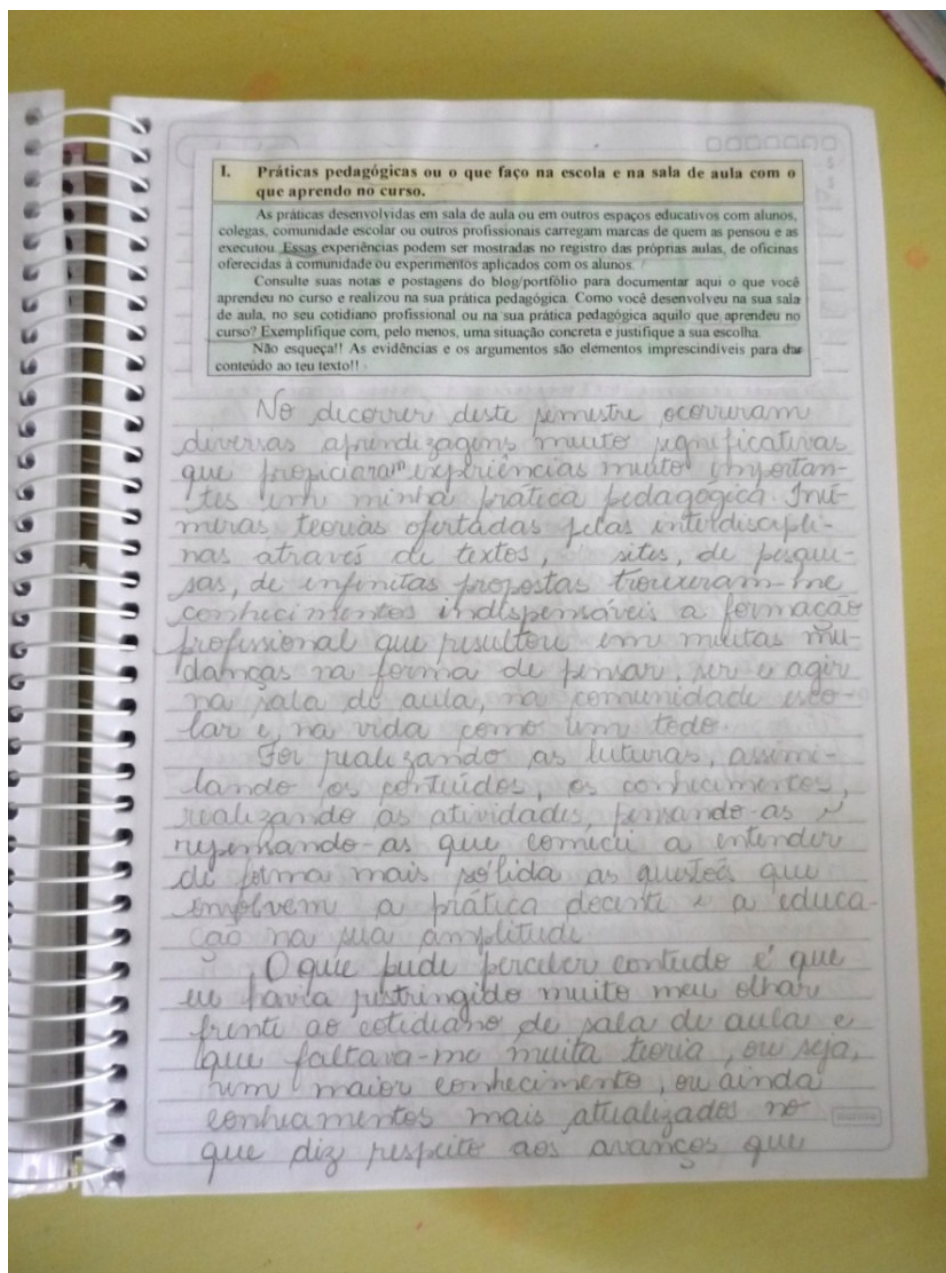 I. Práticas pedagógicas ou o que faço na escola e na sala de aula com o
que aprendo no curso.
As práticas desenvolvidas em sala de aula ou em outros espaços educativos com alunos,
colegas, comunidade escolar ou outros profissionais carregam marcas de quem as pensou e as
executou. Essas experiências podem ser mostradas no registro das próprias aulas, de oficinas
oferecidas à comunidade ou experimentos aplicados com os alunos.
Consulte suas notas e postagens do blog/portfólio para documentar aqui o que você
aprendeu no curso e realizou na sua prática pedagógica. Como você desenvolveu na sua sala
de aula, no seu cotidiano profissional ou na sua prática pedagógica aquilo que aprendeu no
curso? Exemplifique com, pelo menos, uma situação concreta e justifique a sua escolha.
Não esqueça!! As evidências e os argumentos são elementos imprescindíveis para dar
conteúdo ao teu texto!!
No decorrer deste semestre ocorreram
diversas aprendizagens muito significativas
que propiciaram experiências muito importan-
tes em minha prática pedagógica. Inú-
meras teorias ofertadas pelas interdiscipli-
nas através de textos, sites, de pesqui-
sas, de infinitas propostas trouxeram-me
conhecimentos indispensáveis a formação
profissional que resultou em muitas mu-
danças na forma de pensar, ser e agir
na sala de aula, na comunidade esco-
lar e, na vida como um todo.
Foi realizando as leituras, assimi-
lando os conteúdos, os conhecimentos,
realizando as atividades, pensando-as e
repensando-as que comecei a entender
de forma mais sólida as questões que
envolvem a prática docente e a educa-
ção na sua amplitude.
O que pude perceber contudo é que
eu havia restringido muito meu olhar
frente ao cotidiano de sala de aula e
que faltava-me muita teoria, ou seja,
um maior conhecimento, ou ainda
conhecimentos mais atualizados no
que diz respeito aos avanços que